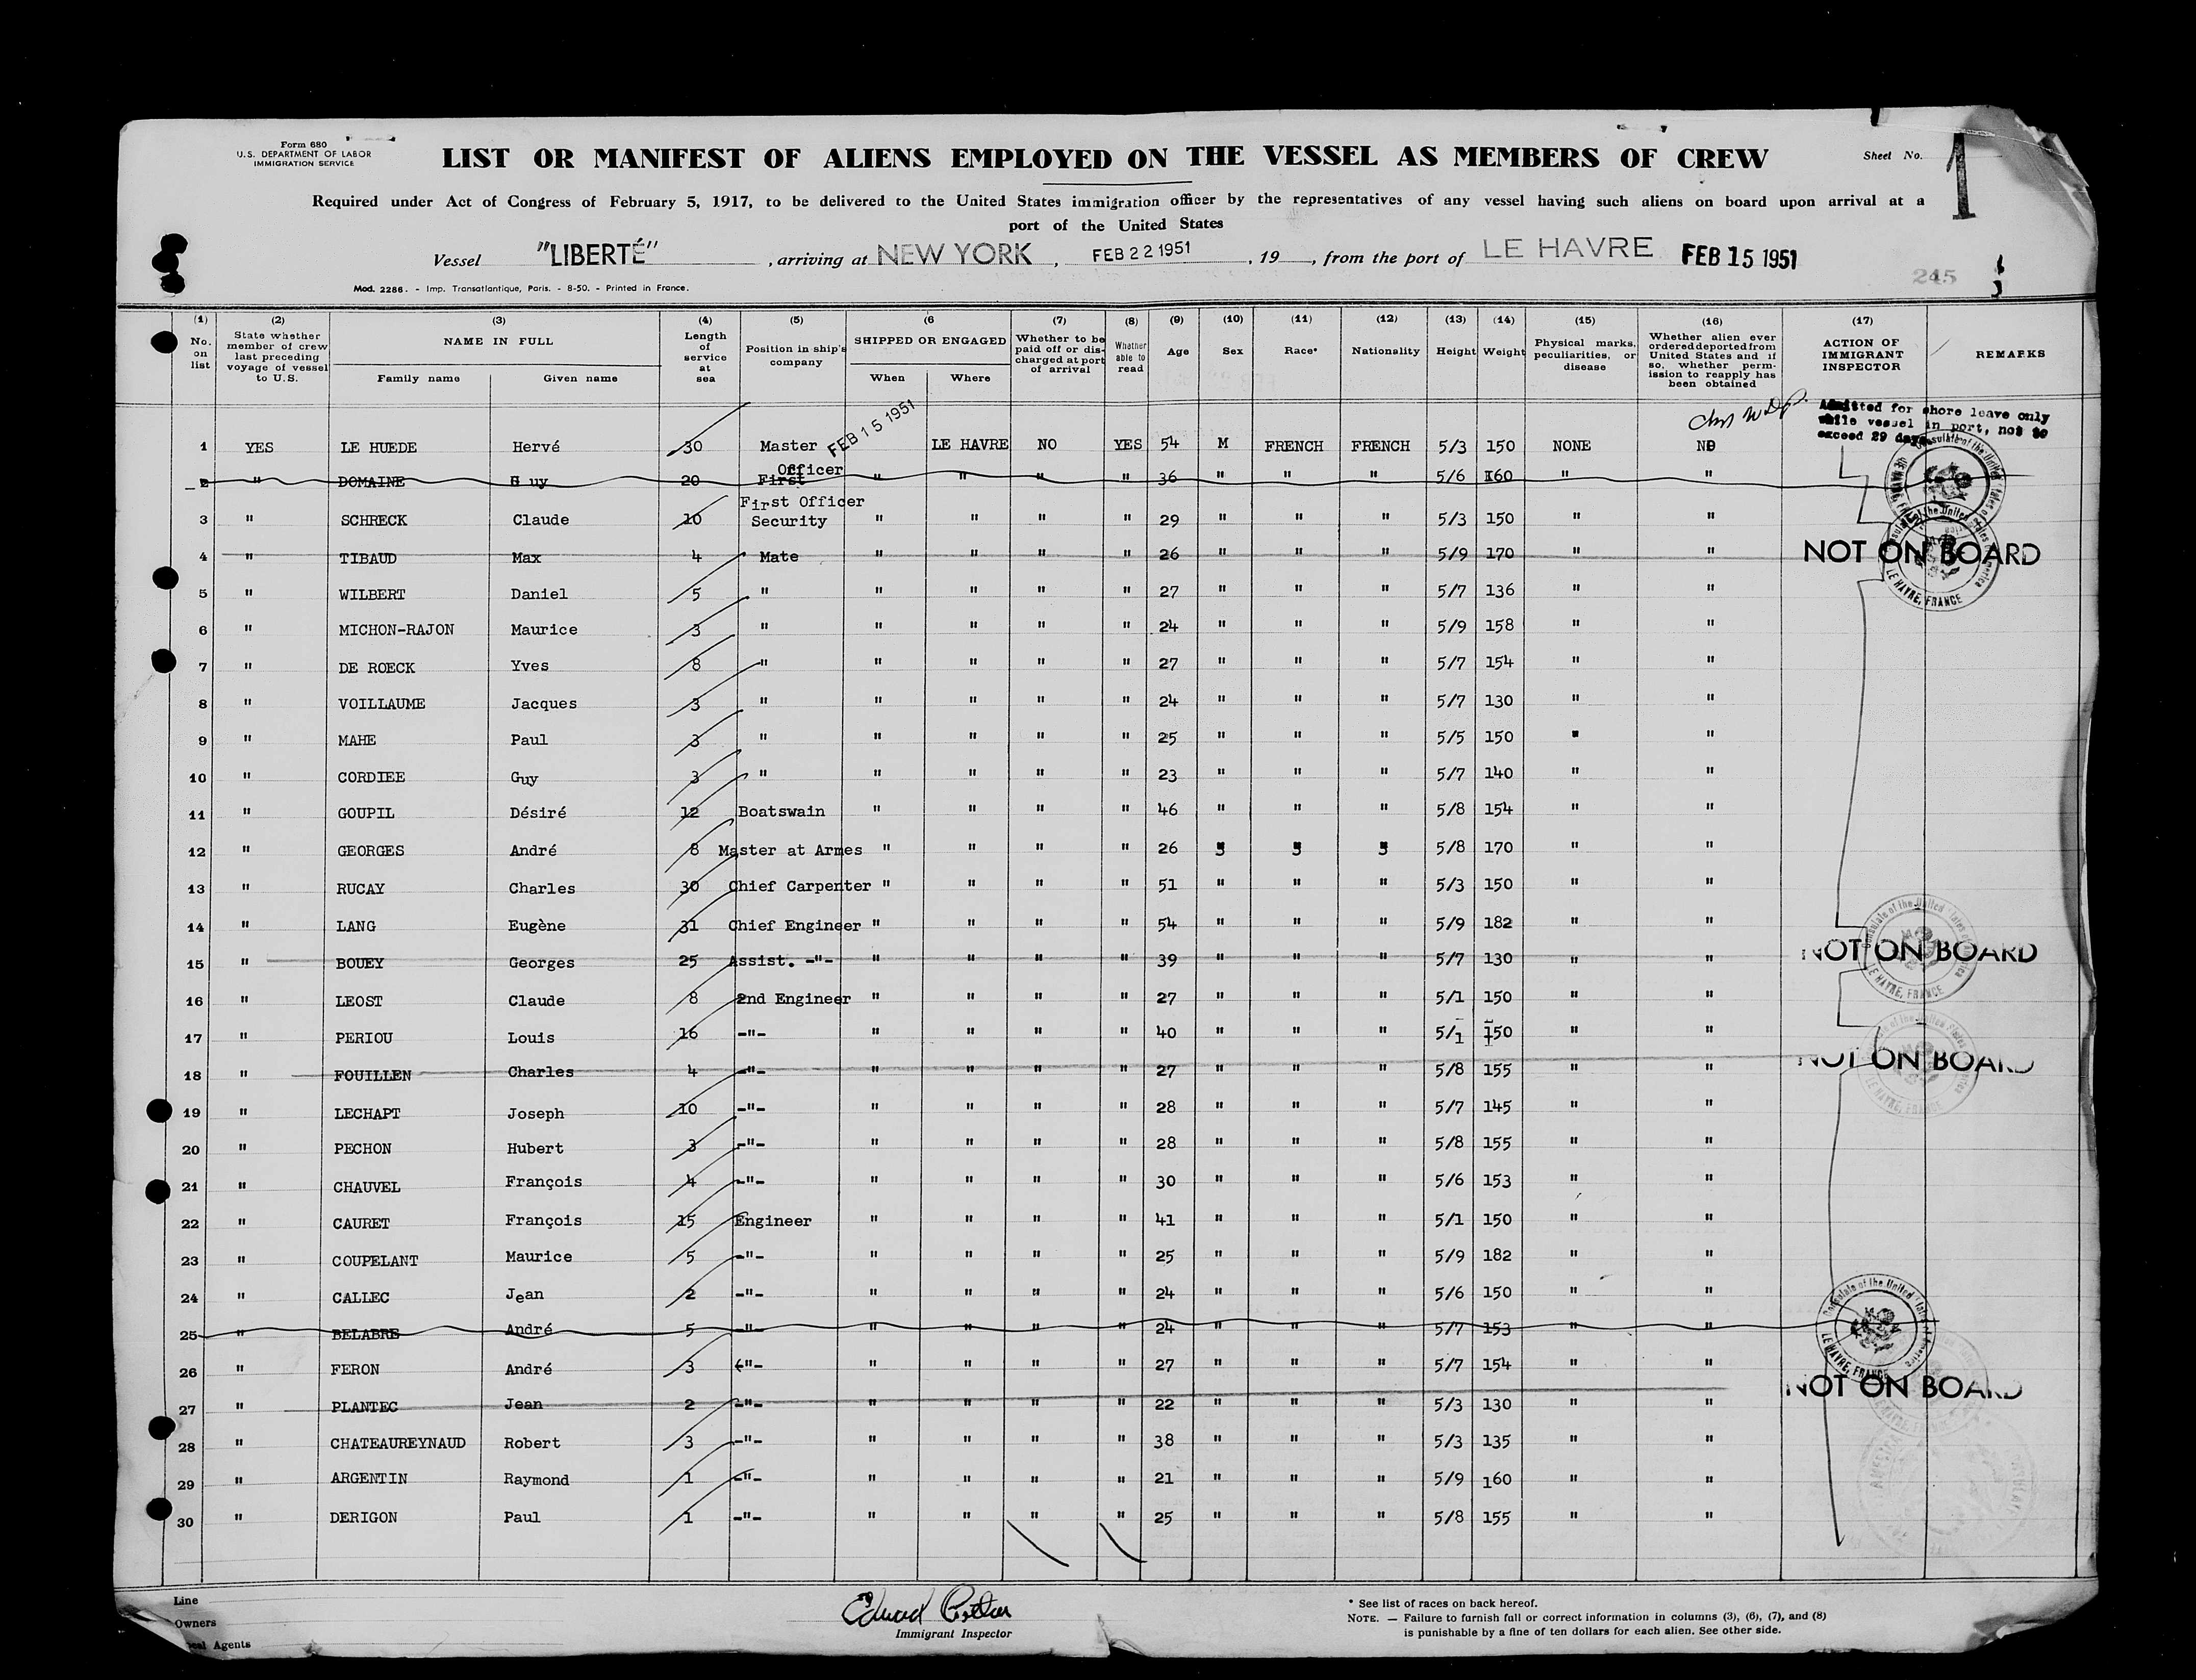 Form 680
U.S. DEPARTMENT OF LABOR
IMMIGRATION SERVICE
LIST OR MANIFEST OF ALIENS EMPLOYED ON THE VESSEL AS MEMBERS OF CREW
Sheet No. 1
Required under Act of Congress of February 5, 1917, to be delivered to the United States immigration officer by the representatives of any vessel having such aliens on board upon arrival at a
port of the United States
Vessel "LIBERTÉ", arriving at NEW YORK, FEB 22 1951, 19, from the port of LE HAVRE FEB 15 1951
245
Mod. 2286. - Imp. Transatlantique, Paris. - 8-50. - Printed in France.
(1) No. on list (2) State whether member of crew last preceding voyage of vessel to U.S. (3) NAME IN FULL Family name Given name (4) Length of service at sea (5) Position in ship's company (6 SHIPPED OR ENGAGED When Where (7) Whether to be paid off or discharged at port of arrival (8) Whether able to read (9) Age (10) Sex (11) Race* (12) Nationality (13) Height (14) Weight (15) Physical marks, peculiarities, or disease (16) Whether alien ever ordered deported from United States and if so, whether permission to reapply has been obtained (17) ACTION OF IMMIGRANT INSPECTOR REMARKS
FEB 15 1951
Admitted for shore leave only
while vessel in port, not to
exceed 29 days.
1 YES LE HUEDE Hervé 30 Master LE HAVRE NO YES 54 M FRENCH FRENCH 5/3 150 NONE NO
2 " DOMAINE Guy 20 First Officer " " " " 36 " " " 5/6 160 " "
3 " SCHRECK Claude 10 First Officer Security " " " " 29 " " " 5/3 150 " "
4 " TIBAUD Max 4 Mate " " " " 26 " " " 5/9 170 " " NOT ON BOARD
5 " WILBERT Daniel 5 " " " " " 27 " " " 5/7 136 " "
6 " MICHON-RAJON Maurice 3 " " " " " 24 " " " 5/9 158 " "
7 " DE ROECK Yves 8 " " " " " 27 " " " 5/7 154 " "
8 " VOILLAUME Jacques 3 " " " " " 24 " " " 5/7 130 " "
9 " MAHE Paul 3 " " " " " 25 " " " 5/5 150 " "
10 " CORDIEE Guy 3 " " " " " 23 " " " 5/7 140 " "
11 " GOUPIL Désiré 12 Boatswain " " " " 46 " " " 5/8 154 " "
12 " GEORGES André 8 Master at Armes " " " " 26 " " " 5/8 170 " "
13 " RUCAY Charles 30 Chief Carpenter " " " " 51 " " " 5/3 150 " "
14 " LANG Eugène 31 Chief Engineer " " " " 54 " " " 5/9 182 " "
15 " BOUEY Georges 25 Assist. -"- " " " " 39 " " " 5/7 130 " " NOT ON BOARD
16 " LEOST Claude 8 2nd Engineer " " " " 27 " " " 5/1 150 " "
17 " PERIOU Louis 16 -"- " " " " 40 " " " 5/1 150 " "
18 " FOUILLEN Charles 4 -"- " " " " 27 " " " 5/8 155 " " NOT ON BOARD
19 " LECHAPT Joseph 10 -"- " " " " 28 " " " 5/7 145 " "
20 " PECHON Hubert 3 -"- " " " " 28 " " " 5/8 155 " "
21 " CHAUVEL François 4 -"- " " " " 30 " " " 5/6 153 " "
22 " CAURET François 15 Engineer " " " " 41 " " " 5/1 150 " "
23 " COUPELANT Maurice 5 -"- " " " " 25 " " " 5/9 182 " "
24 " CALLEC Jean 2 -"- " " " " 24 " " " 5/6 150 " "
25 " BELABRE André 5 -"- " " " " 24 " " " 5/7 153 " "
26 " FERON André 3 -"- " " " " 27 " " " 5/7 154 " "
27 " PLANTEC Jean 2 -"- " " " " 22 " " " 5/3 130 " " NOT ON BOARD
28 " CHATEAUREYNAUD Robert 3 -"- " " " " 38 " " " 5/3 135 " "
29 " ARGENTIN Raymond 1 -"- " " " " 21 " " " 5/9 160 " "
30 " DERIGON Paul 1 -"- " " " " 25 " " " 5/8 155 " "
Consulate of the United States of America LE HAVRE, FRANCE
Line
Owners
Agents
Edward
Immigrant Inspector
* See list of races on back hereof.
NOTE. — Failure to furnish full or correct information in columns (3), (6), (7), and (8)
is punishable by a fine of ten dollars for each alien. See other side.